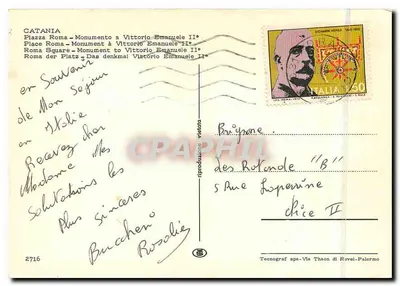 CATANIA
Piazza Roma - Monumento a Vittorio Emanuele II°
Place Roma - Monument à Vittorio Emanuele II°
Roma Square - Monument to Vittorio Emanuele II°
Roma der Platz - Das denkmal Vittorio Emanuele II°
en Souvenir
de Mon Sejour
en Italie
Recevez cher
Madame Mes
Salutations les
Plus Sinceres
Buccheri
Rosalie
2716
riproduzione vietata
CPARAMA
ITALIA 50
Les Rotonde "B"
5 Rue
Nice II
Tecnograf spa - Via Thaon di Revel - Palermo